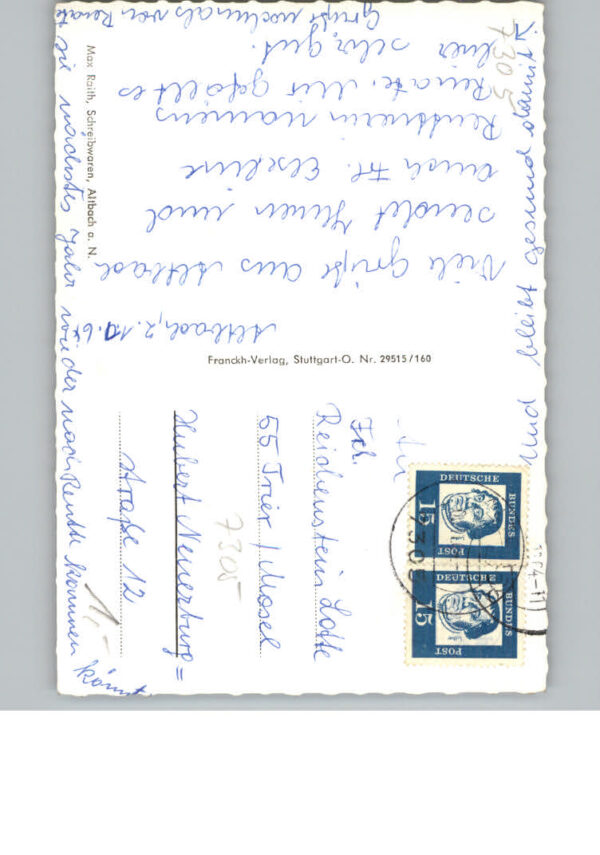 Altbach, 2.10.64
Viele Grüße aus Altbach
sendet Ihnen und
auch Frl. Elseline
Reutsch
Renate. Mir gefällt es
hier sehr gut.
Grüße nochmals von Renate
Und bleibt gesund damit
sie nächstes Jahr wieder nach kommen könnt
Max Raith, Schreibwaren, Altbach a. N.
Franckh-Verlag, Stuttgart-O. Nr. 29515/160
7305
An
Reichenstein Lotte
55 Trier / Mosel
Hubert Neuerburg=
straße 12
7305
1,-
DEUTSCHE
BUNDES
POST
15
DEUTSCHE
BUNDES
POST
15
7305